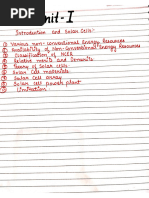 Unit-I
Introduction and Solar Cells:-
① Various non-conventional Energy Resources
② Availability of Non-Conventional Energy Resources
③ Classification of NCER
④ Relative merits and Demerits
⑤ Theory of Solar cells
⑥ Solar cell materials
⑦ Solar cell array
⑧ Solar cell power plant
⑨ Limitation